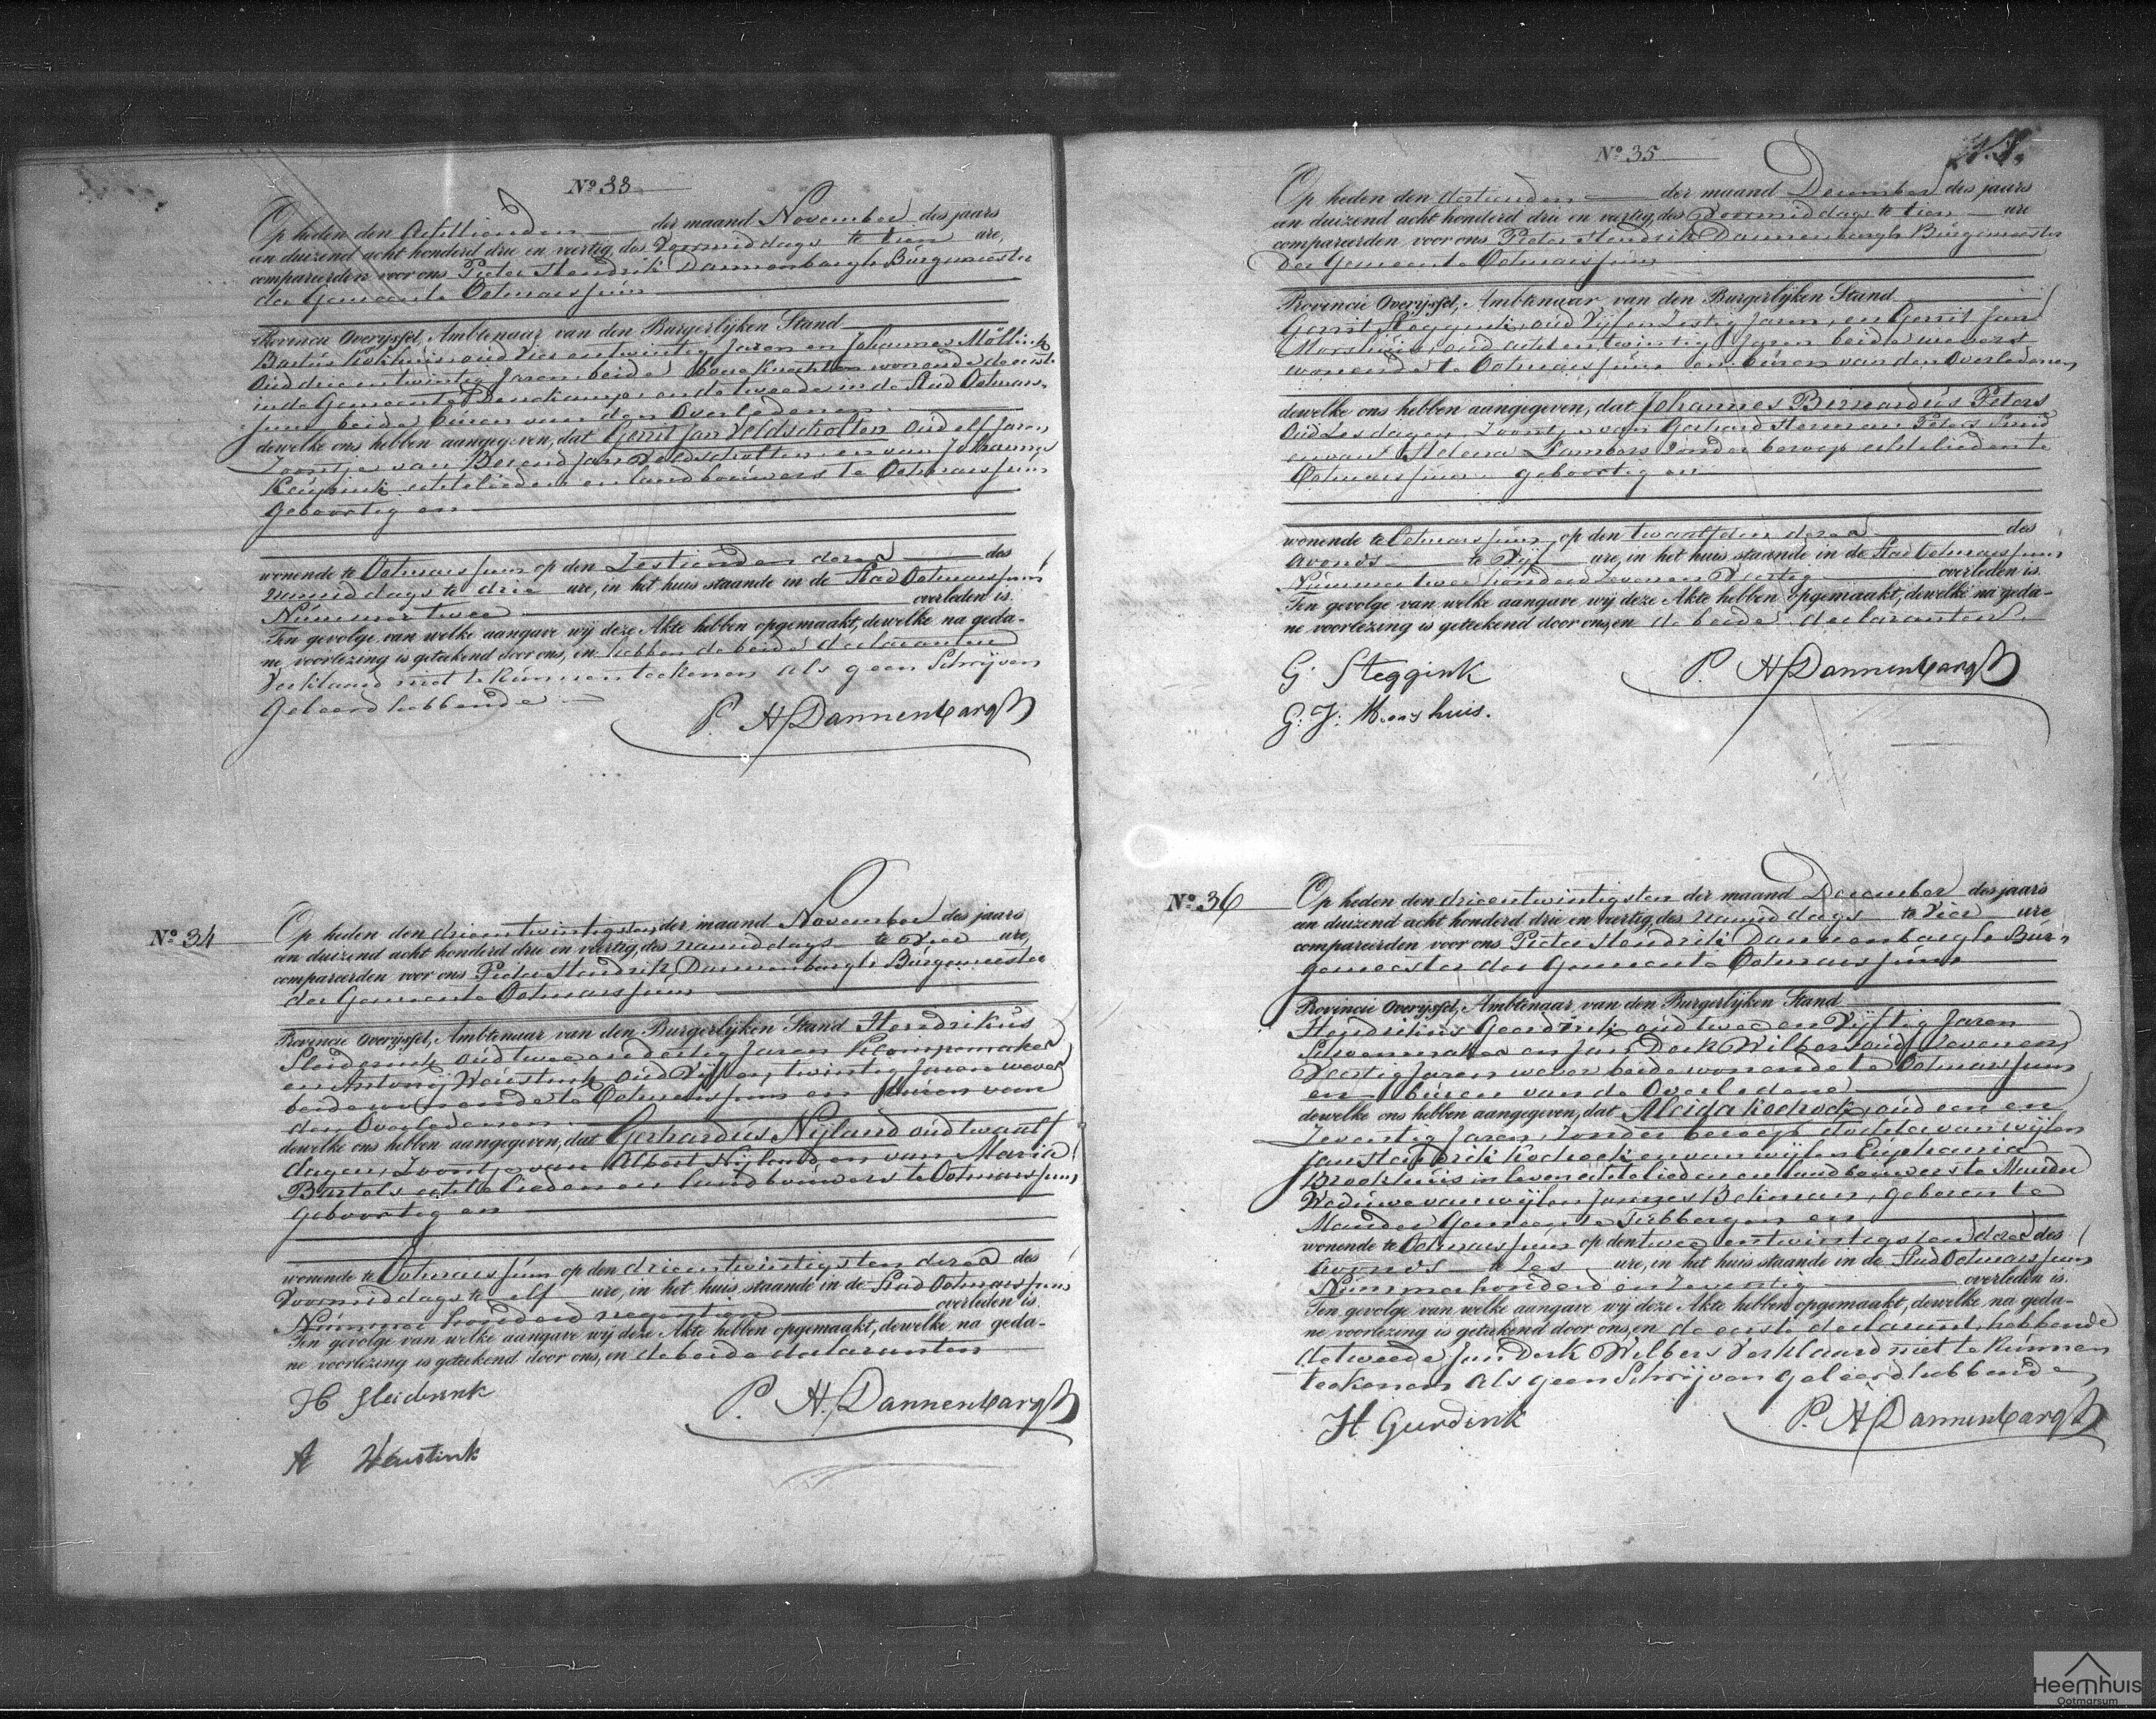 Nº 33
Op heden den Achttienden der maand November des jaars
een duizend acht honderd drie en veertig, des Voormiddags te tien ure,
compareerden voor ons Pieter Hendrik Dannenbargh Burgemeester
der Gemeente Ootmarssum
Provincie Overijssel, Ambtenaar van den Burgerlijken Stand
Bartús oúd Vier en twintig Jaren en Johannes Möllink
Oúd drie en twintig Jaren beide Boereknechten wonende de eerste
in de Gemeente Denekamp en de tweede in de Stad Ootmars-
sum beide búren van den Overledenen
dewelke ons hebben aangegeven, dat Gerrit Jan Veldscholten oúd elf Jaren
Zoontje van Berend Jan Veldscholten en van Johanna
echtelieden en landboúwers te Ootmarssum
geboortig en
wonende te Ootmarssum op den Zestienden deres des
namiddags te drie ure, in het huis staande in de Stad Ootmarssum
Núm̃er twee overleden is.
Ten gevolge van welke aangave wij deze Akte hebben opgemaakt, dewelke na geda-
ne voorlezing is geteekend door ons, en hebben de beide declaranten
Verklaard niet te kúnnen teekenen als geen Schrijven
Geleerd hebbende
P. H. Dannenbargh
Nº 34
Op heden den drieentwintigsten der maand November des jaars
een duizend acht honderd drie en veertig, des namiddags te Vier ure,
compareerden voor ons Pieter Hendrik Dannenbargh Búrgemeester
der Gemeente Ootmarssúm
Provincie Overijssel, Ambtenaar van den Burgerlijken Stand Hendrikús
Sleiderink oúd twee en dertig Jaren Klompemaker
en Antonij Weústink oúd Vijf en twintig Jaren wever
beide wonende te Ootmarssum en búren van
den Overledenen
dewelke ons hebben aangegeven, dat Gerhardús Nijland oúd twaalf
dagen, Zoontje van Albert Nijland en van Maria
Bartels echtelieden en landboúwers te Ootmarssum
geboortig en
wonende te Ootmarssúm op den drieentwintigsten deres des
Voormiddags te elf ure, in het huis staande in de Stad Ootmarssum
Núm̃er honderd negentien overleden is.
Ten gevolge van welke aangave wij deze Akte hebben opgemaakt, dewelke na geda-
ne voorlezing is geteekend door ons, en de beide declaranten
H Sleiderink
P. H. Dannenbargh
A Weustink
Nº 35
Op heden den dertienden der maand December des jaars
een duizend acht honderd drie en veertig, des Voormiddags te tien ure
compareerden voor ons Pieter Hendrik Dannenbargh Búrgemeester
der Gemeente Ootmarssum
Provincie Overijssel, Ambtenaar van den Burgerlijken Stand
Gerrit Steggink, oúd Vijf en Zestig Jaren, en Gerrit Jan
Morshúis, oúd acht en twintig Jaren beide wevers
wonende te Ootmarssúm en búren van den Overledenen
dewelke ons hebben aangegeven, dat Johannes Bernardús Peters
Oúd Zes dagen, Zoontje van Gerhard Herman Peters Smid
en van Aldena Lambers Zonder beroep echtelieden te
Ootmarssum geboortig en
wonende te Ootmarssum, op den twaalfden deres des
avonds te Vijf ure, in het huis staande in de Stad Ootmarssum
Núm̃er twee honderd Zeven en Veertig overleden is.
Ten gevolge van welke aangave wij deze Akte hebben opgemaakt, dewelke na geda-
ne voorlezing is geteekend door ons, en de beide declaranten
G: Steggink
P. H. Dannenbargh
G: J: Morshuis.
Nº 36
Op heden den drieentwintigsten der maand December des jaars
een duizend acht honderd drie en veertig, des namiddags te Vier ure
compareerden voor ons Pieter Hendrik Dannenbargh Bur-
gemeester der Gemeente Ootmarssum
Provincie Overijssel, Ambtenaar van den Burgerlijken Stand
Hendrikús Geerdink oúd twee en Vijftig Jaren
Schoenmaker en Jan Derk Wilbers oúd Zeven en
Veertig Jaren wever beide wonende te Ootmarssum
en búren van de Overledene
dewelke ons hebben aangegeven, dat Aleida Kochock, oúd een en
Zeventig Jaren, Zonder beroep dochter van wijlen
Jan Hendrik Kochock en van wijlen Eúphamia
Broekhúis in leven echtelieden en landboúwers te Mander
Wedúwe van wijlen Jannes Bekman, geboren te
Mander Gemeente Tubbergen en
wonende te Ootmarssúm op den twee entwintigsten deres des
avonds te Zes ure, in het huis staande in de Stad Ootmarssum
Núm̃er honderd en Zeventig overleden is.
Ten gevolge van welke aangave wij deze Akte hebben opgemaakt, dewelke na geda-
ne voorlezing is geteekend door ons, en de eerste declarant, hebbende
de tweede Jan Derk Wilbers Verklaard niet te kúnnen
teekenen als geen Schrijven geleerd hebbende
H Geerdink
P. H. Dannenbargh
Heemhuis
Ootmarsum